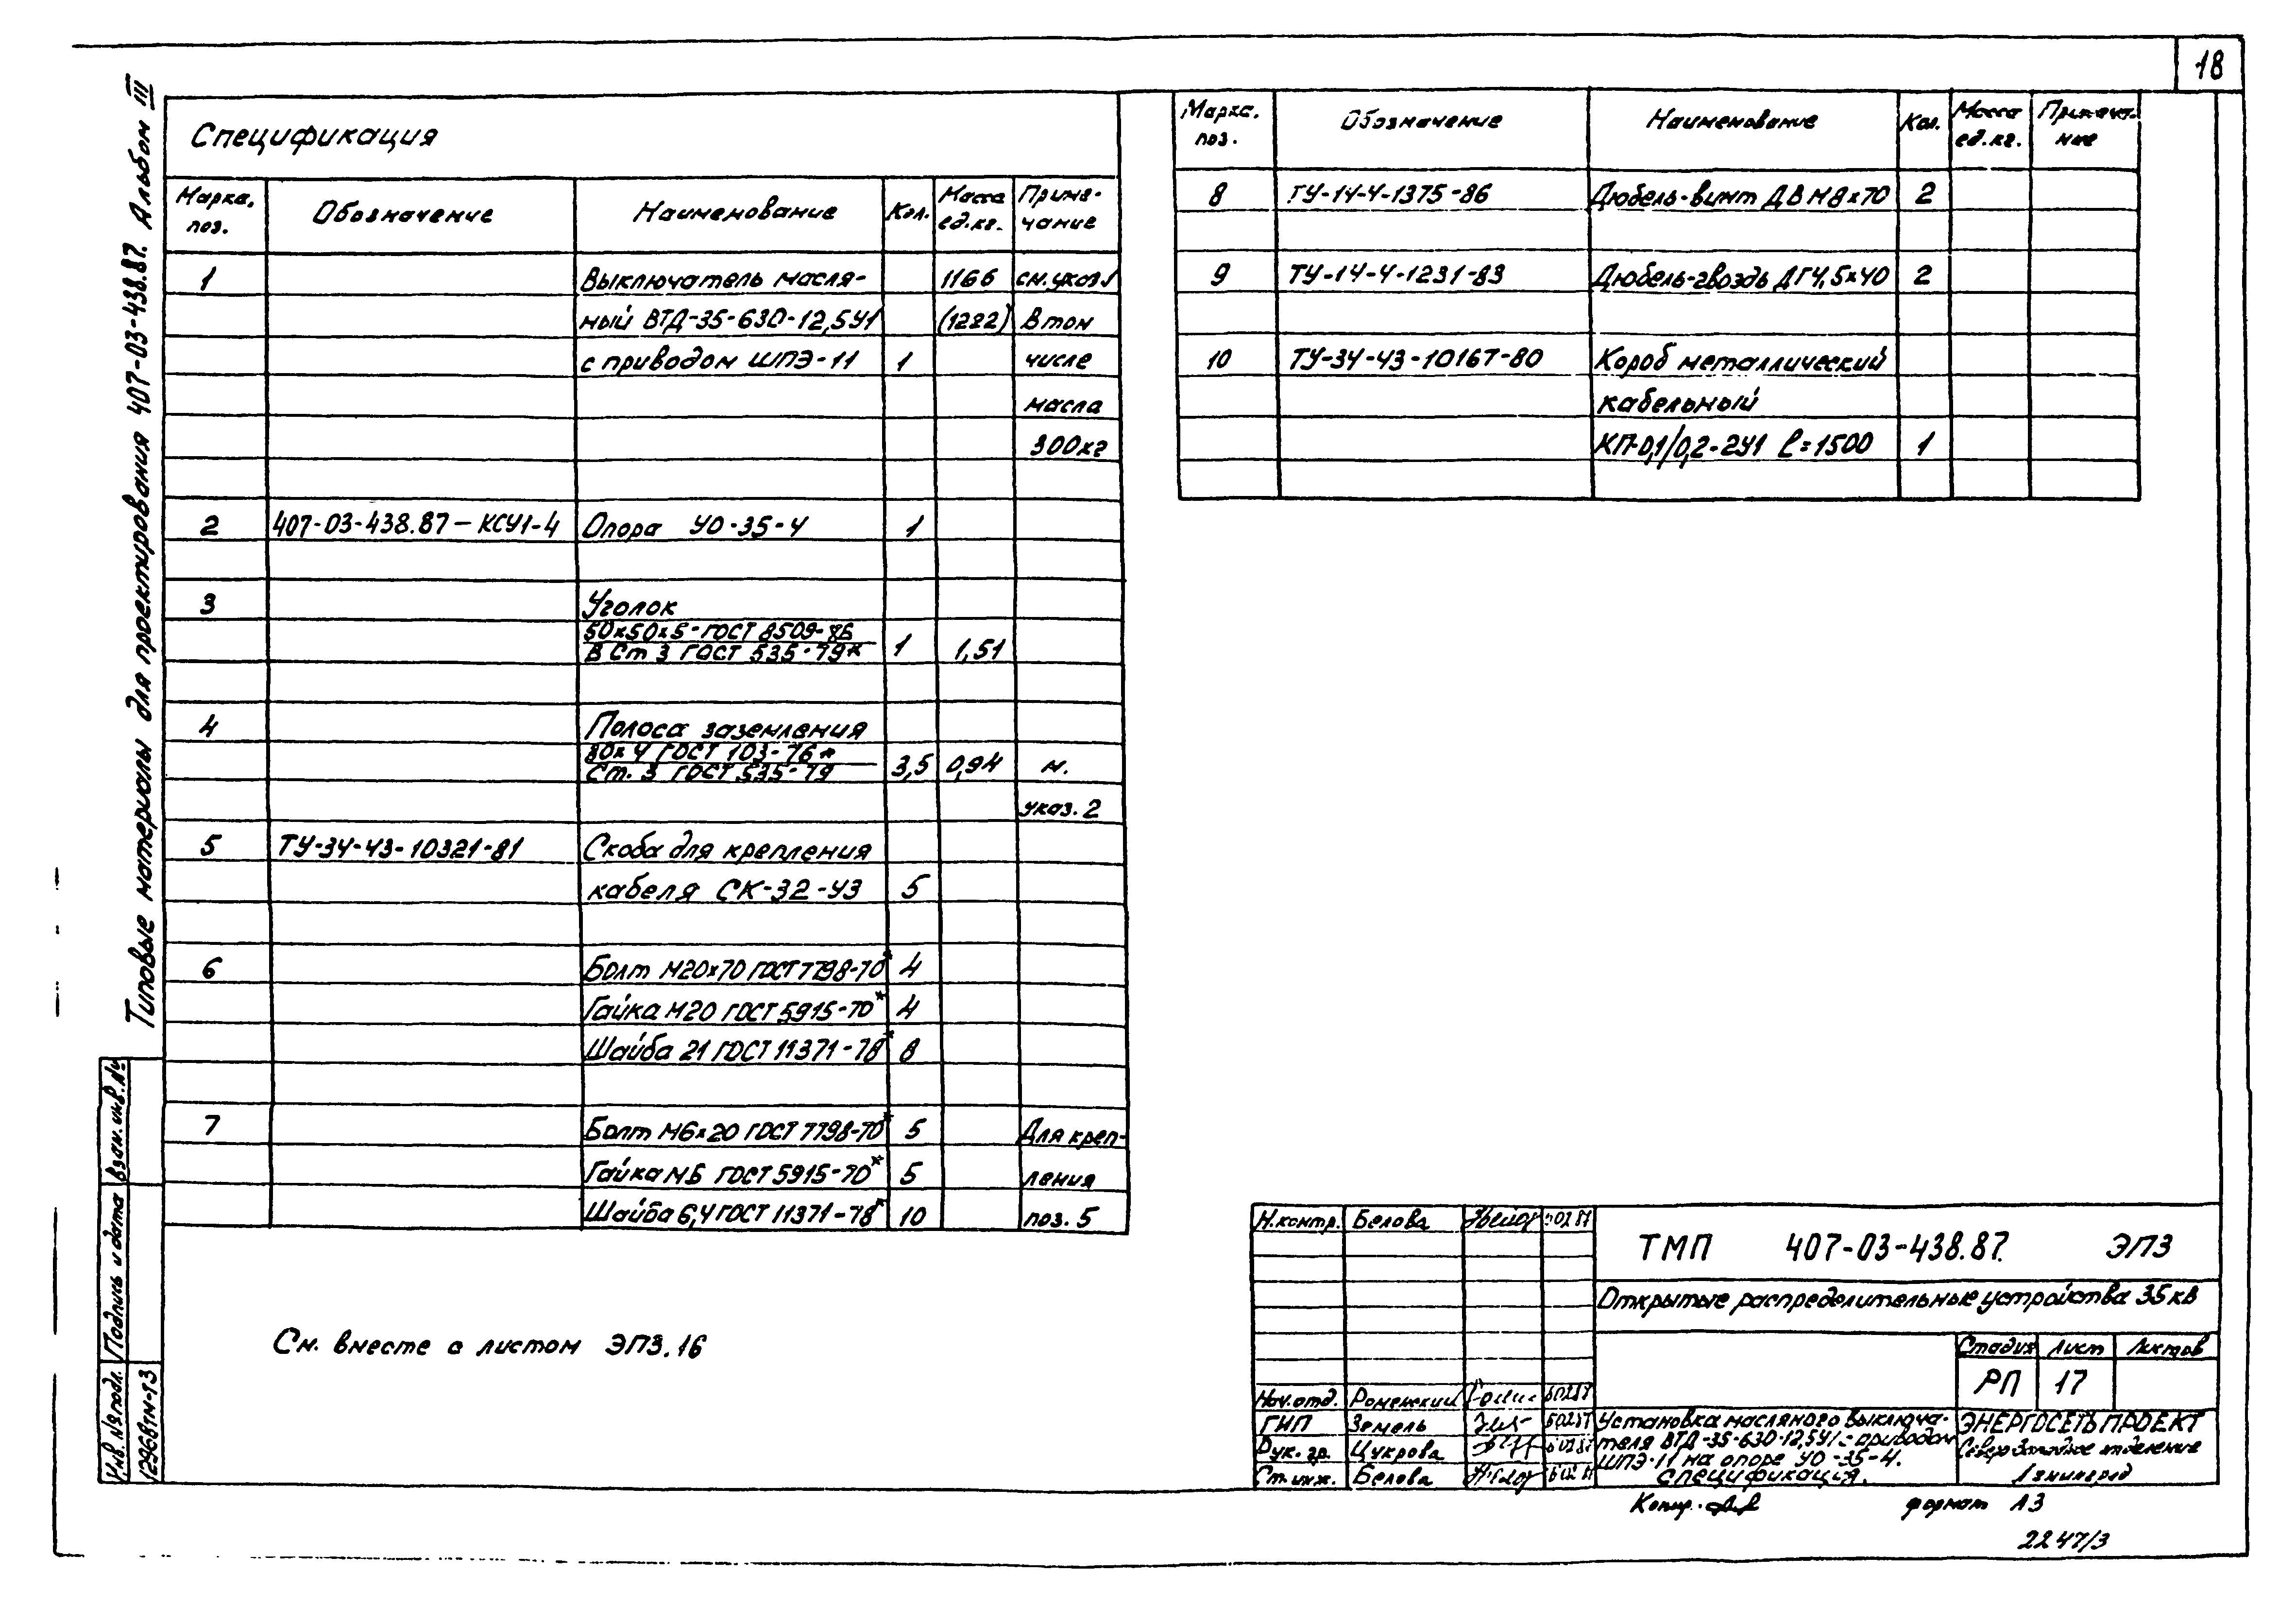 18
Типовые материалы для проектирования 407-03-438.87. Альбом III
Спецификация
Марка, поз. Обозначение Наименование Кол. Масса ед.кг. Приме-чание
1 Выключатель масля- 1166 см.указ 1
ный ВТД-35-630-12,5У1 (1222) В том
с приводом ШПЭ-11 1 числе
масла
300кг
2 407-03-438.87-КСУ1-4 Опора УО-35-4 1
3 Уголок
50x50x5-ГОСТ 8509-86
В Ст 3 ГОСТ 535-79* 1 1,51
4 Полоса заземления
30x4 ГОСТ 103-76*
Ст. 3 ГОСТ 535-79 3,5 0,94 м.
указ. 2
5 ТУ-34-43-10321-81 Скоба для крепления
кабеля СК-32-У3 5
6 Болт М20x70 ГОСТ 7798-70* 4
Гайка М20 ГОСТ 5915-70* 4
Шайба 21 ГОСТ 11371-78* 8
7 Болт М6x20 ГОСТ 7798-70* 5 Для креп-
Гайка М6 ГОСТ 5915-70* 5 ления
Шайба 6,4 ГОСТ 11371-78* 10 поз. 5
Марка, поз. Обозначение Наименование Кол. Масса ед.кг. Примеча-ние
8 ТУ-14-4-1375-86 Дюбель-винт ДВ М8x70 2
9 ТУ-14-4-1231-83 Дюбель-гвоздь ДГ4,5x40 2
10 ТУ-34-43-10167-80 Короб металлический
кабельный
КП-0,1/0,2-2У1 ℓ=1500 1
См. вместе с листом ЭП3.16
Инв. № подл. Подпись и дата Взам. инв. №
12968тм-т3
Н.контр. Белова
Нач.отд. Роменский
ГИП Земель
Рук. гр. Цукрова
Ст.инж. Белова
ТМП 407-03-438.87. ЭП3
Открытые распределительные устройства 35кв
Стадия Лист Листов
РП 17
Установка масляного выключа-
теля ВТД-35-630-12,5У1 с приводом
ШПЭ-11 на опоре УО-35-4.
Спецификация.
ЭНЕРГОСЕТЬПРОЕКТ
Северо-Западное отделение
Ленинград
Копир.
формат А3
2247/3